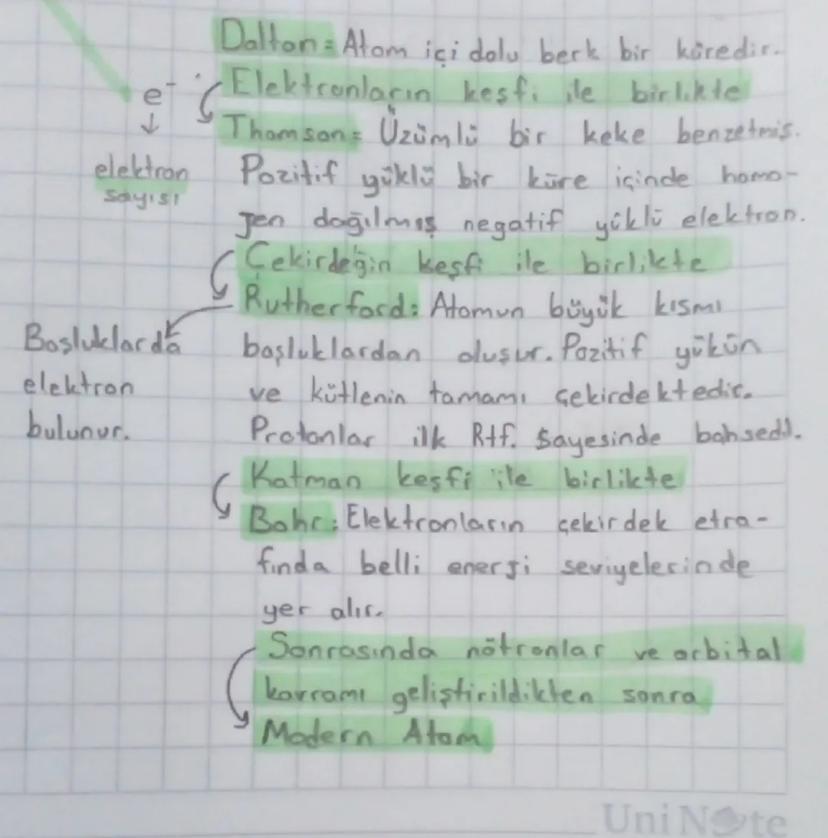 Dalton = Atom içi dolu berk bir küredir.
Elektronların keşfi ile birlikte
e⁻
↓
elektron
sayısı
Thomson = Üzümlü bir keke benzetmiş.
Pozitif yüklü bir küre içinde homo-
jen dağılmış negatif yüklü elektron.
Çekirdeğin keşfi ile birlikte
Rutherford: Atomun büyük kısmı
boşluklardan oluşur. Pozitif yükün
ve kütlenin tamamı çekirdektedir.
Protonlar ilk Rtf. sayesinde bahsedil.
Boşluklarda
elektron
bulunur.
Katman keşfi ile birlikte
Bohr: Elektronların çekirdek etra-
fında belli enerji seviyelerinde
yer alır.
Sonrasında nötronlar ve orbital
kavramı geliştirildikten sonra
Modern Atom
UniNote